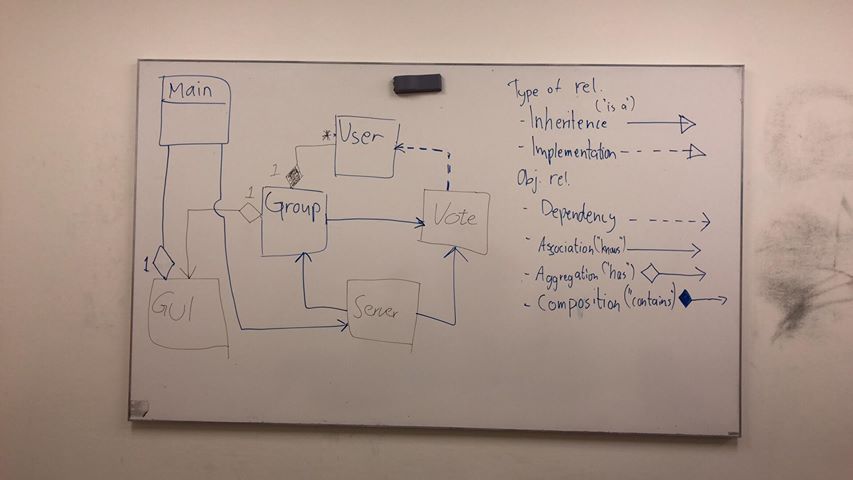 Main
*
User
1
1
Group
Vote
1
GUI
Server
Type of rel.
("is a")
- Inheritence
- Implementation
Obj. rel.
- Dependency
- Association("knows")
- Aggregation("has")
- Composition("contains")